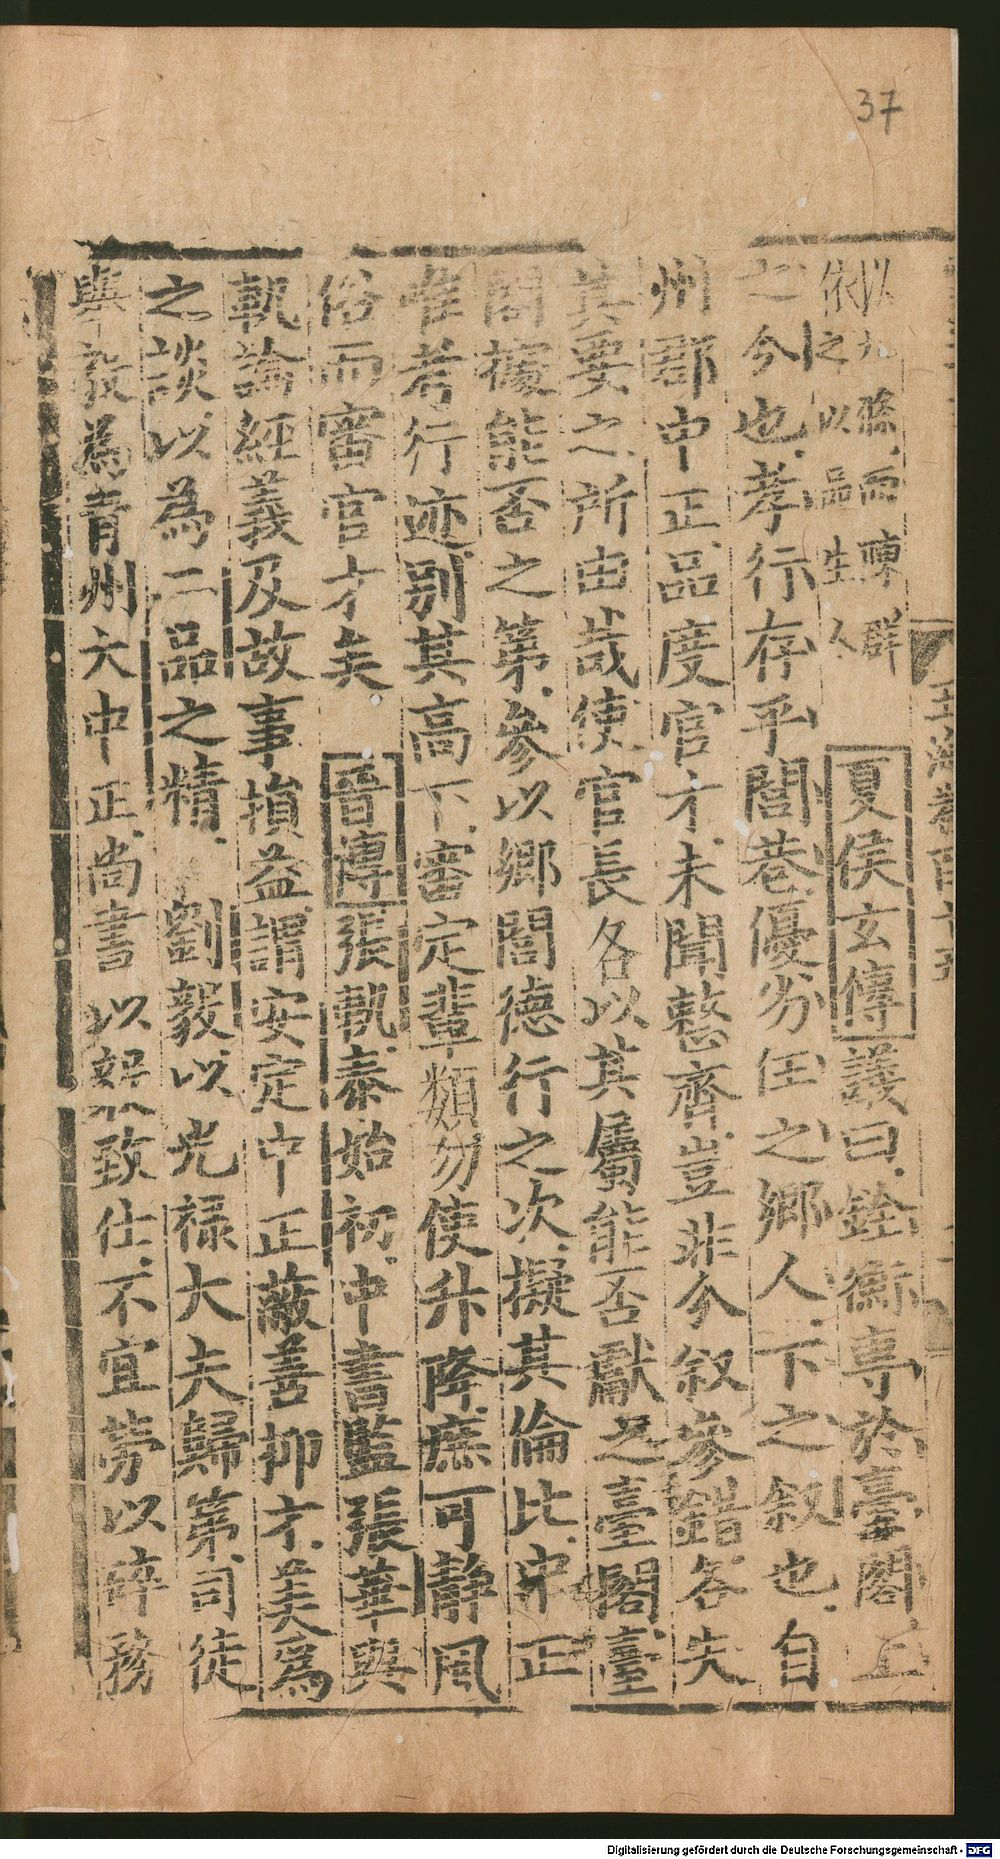 37
以九條而陳群
依之以品生人
夏侯玄傳議曰銓衡專於臺閣上
之今也孝行存乎閭巷優劣任之鄉人下之叙也自
州郡中正品度官才未聞整齊豈非今叙參錯各失
其要之所由哉使官長各以其屬能否獻之臺閣臺
閣據能否之第參以鄉閭德行之次擬其倫比中正
唯考行迹別其高下審定輩類勿使升降痲可靜風
俗而審官才矣 晉傳張軌泰始初中書監張華與
軌論經義及故事損益謂安定中正蔽善抑才美為
之談以為二品之精 劉毅以光禄大夫歸第司徒
舉毅為青州大中正尚書以毅致仕不宜勞以碎務
Digitalisierung gefördert durch die Deutsche Forschungsgemeinschaft - DFG